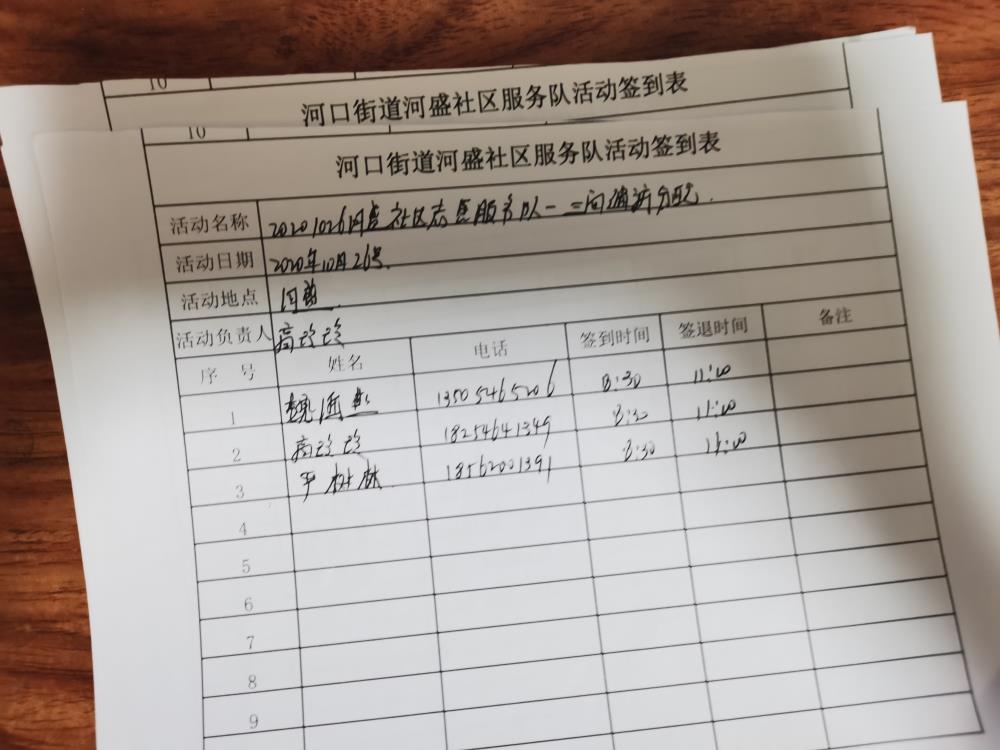 10
河口街道河盛社区服务队活动签到表
10
河口街道河盛社区服务队活动签到表
活动名称 20201026河盛社区志愿服务队一
活动日期 2020年10月26号.
活动地点 河盛
活动负责人 高珍珍
序 号 姓名 电话 签到时间 签退时间 备注
1 魏 13505465206 8:30 11:00
2 高珍珍 18254641349 8:30 11:00
3 18562001391 8:30 11:00
4
5
6
7
8
9